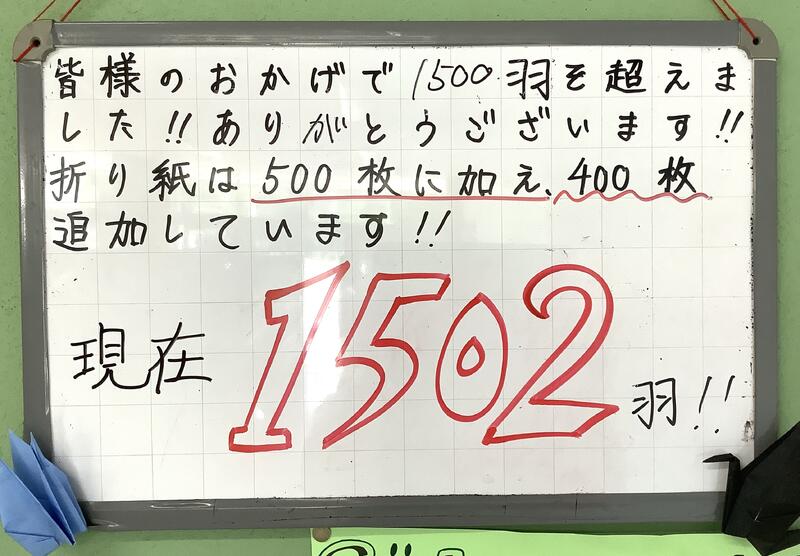 皆様のおかげで1500羽を超えま
した!!ありがとうございます!!
折り紙は500枚に加え、400枚
追加しています!!
現在 1502 羽!!